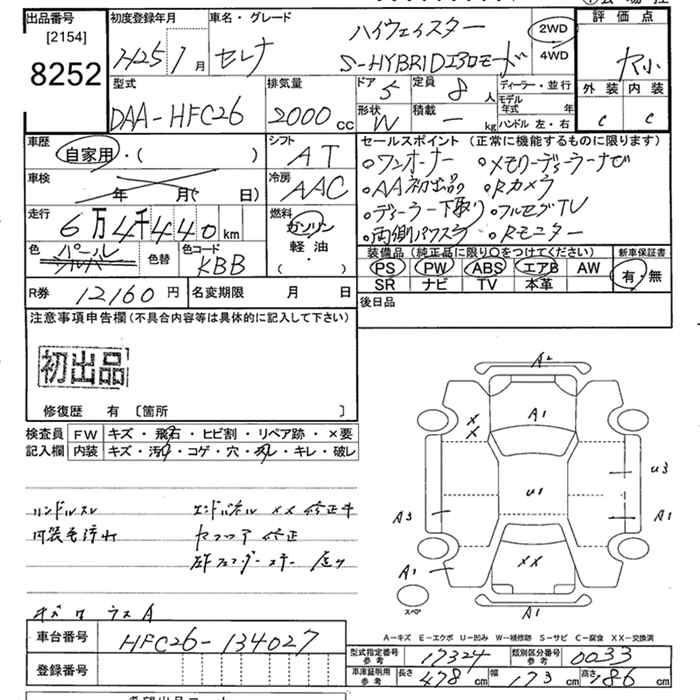 出品番号 [2154] 8252
初度登録年月 H25年 1月
車名・グレード セレナ ハイウェイスター S-HYBRIDエアロモード
2WD 4WD
評価点
外装 C 内装 C
型式 DAA-HFC26
排気量 2000 CC
ドア 5 定員 8人
形状 W 積載 — kg
ディーラー・並行
モデル年式 年
ハンドル 左・右
車歴 自家用・( )
シフト AT
車検 年 月(・ 日)
冷房 AAC
走行 6万4千440 km
燃料 ガソリン 軽油・( )
色 パール 色替 色コード KBB
R券 12160円 名変期限 月 日
セールスポイント (正常に機能するものに限ります)
○ワンオーナー ○メモリーディーラーナビ
○AA初出品 ○Rカメラ
○ディーラー下取り ○フルセグTV
○両側パワスラ ○Rモニター
装備品 (純正品に限り○をつけてください) 新車保証書
PS PW ABS エアB AW 有・無
SR ナビ TV 本革
後日品
注意事項申告欄 (不具合内容等は具体的に記入して下さい)
初出品
修復歴 有 〔箇所 〕
検査員記入欄
FW キズ・飛石・ヒビ割・リペア跡・×要
内装 キズ・汚れ・コゲ・穴・スレ・キレ・破レ
ハンドルスレ エンドパネル ××修正キ
内装毛汚れ
A2
A1
XX
U3
U1
A3 A1
XX
A1
スペア
A1
A-キズ E-エクボ U-凹み W-補修跡 S-サビ C-腐食 XX-交換済
車台番号 HFC26-134027
登録番号
型式指定番号 参考 17324 類別区分番号 参考 0033
車庫証明用 参考 長さ 478 cm 幅 173 cm 高さ 186 cm